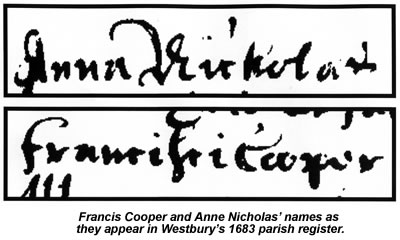 Anna Nickolas
francisci Cooper
Francis Cooper and Anne Nicholas' names as
they appear in Westbury's 1683 parish register.